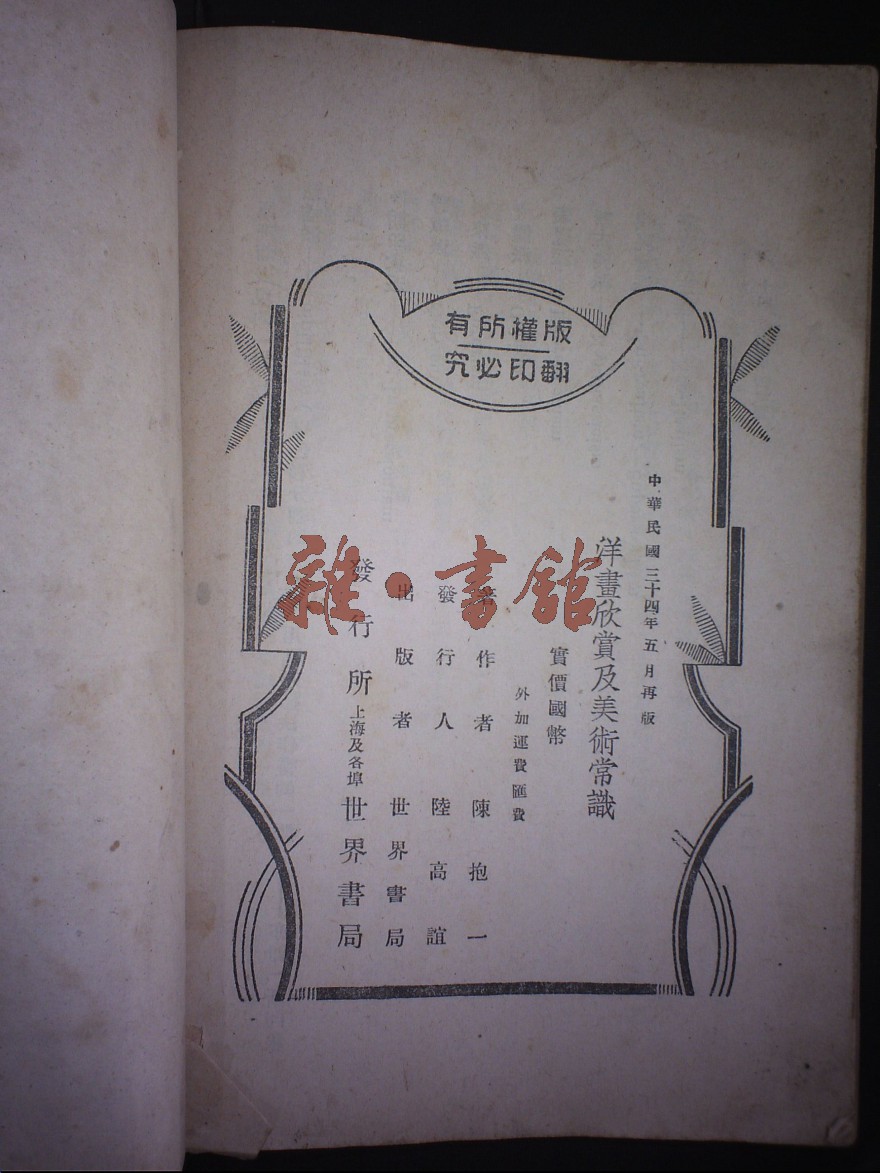 版權所有
翻印必究
中華民國三十四年五月再版
洋畫欣賞及美術常識
實價國幣
外加運費匯費
著作者 陳抱一
發行人 陸高誼
出版者 世界書局
發行所 上海及各埠 世界書局
雜·書館